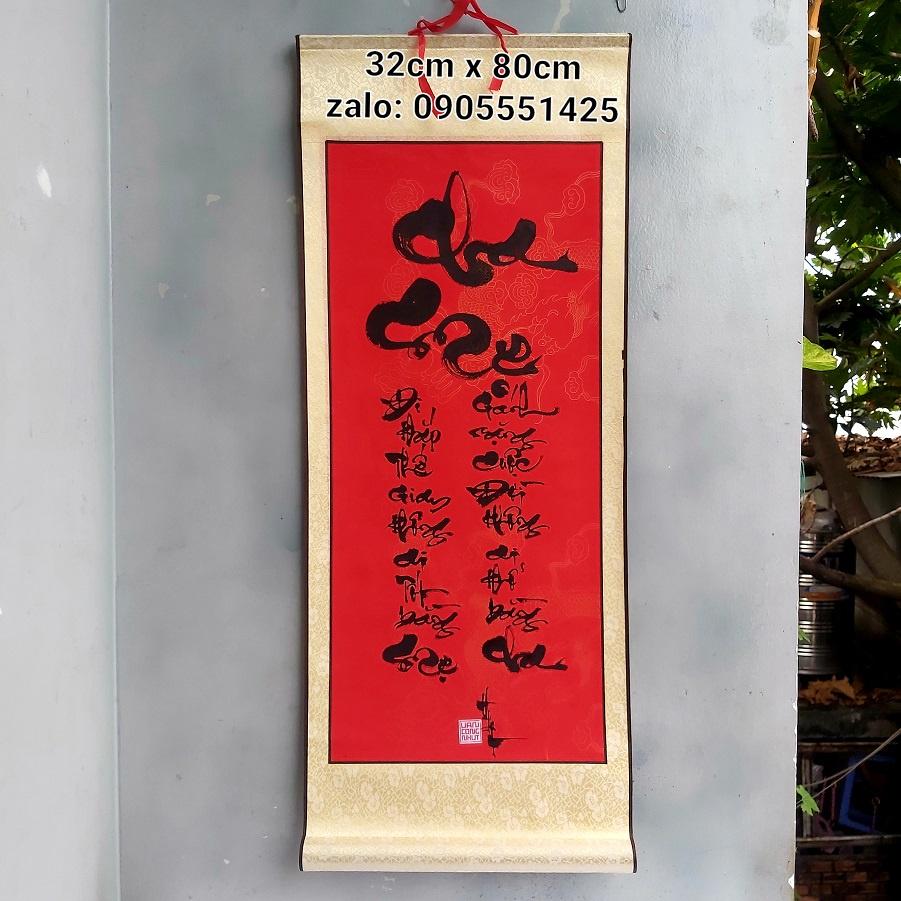 32cm x 80cm
zalo: 0905551425
Cha
Mẹ
Đi
khắp
Thế
Gian
không
ai
Tốt
bằng
Mẹ
Gánh
nặng
cuộc
Đời
không
ai
khổ
bằng
Cha